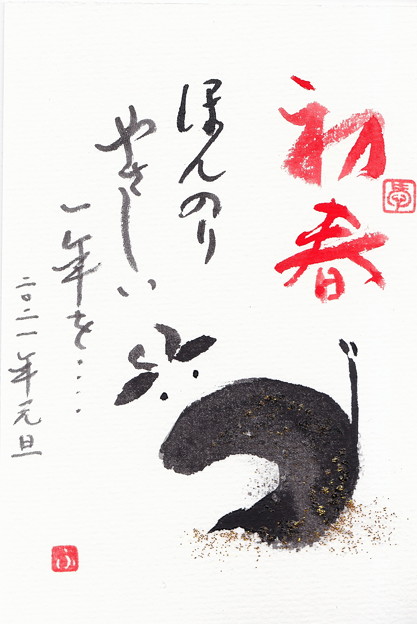 初春
ほんのり
やさしい
一年を・・・・
二〇二一年元旦
ふ